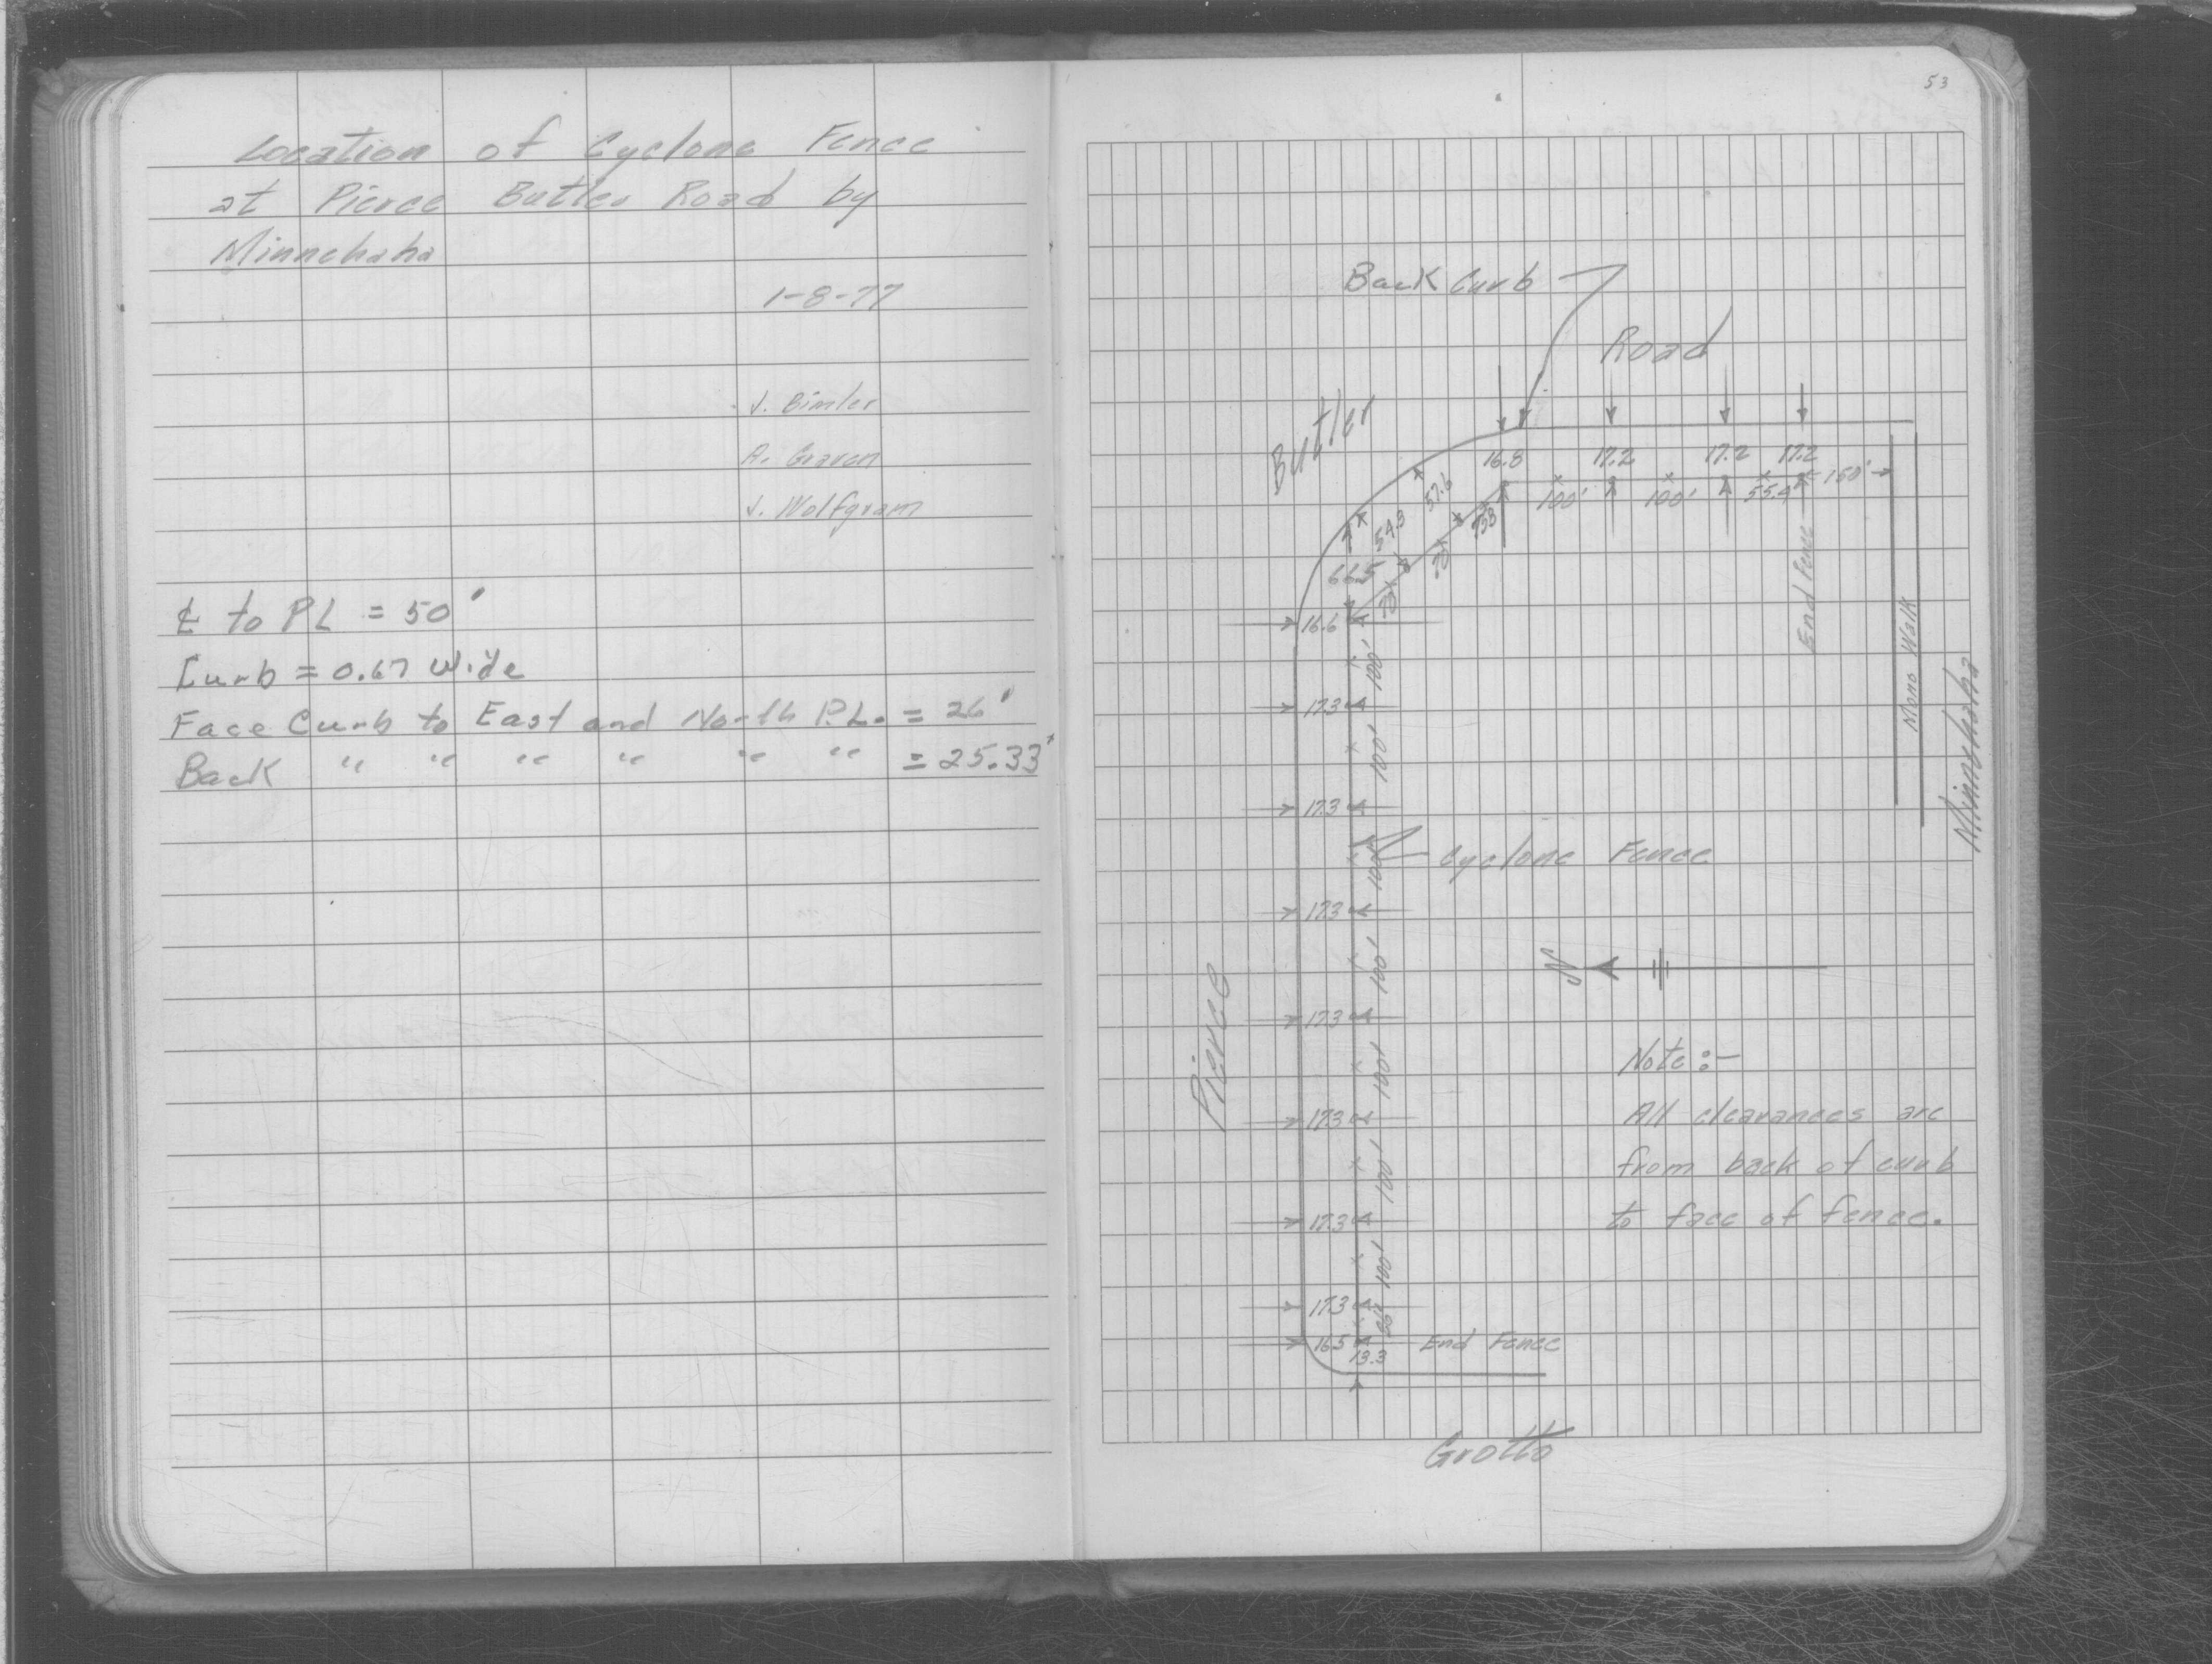 Location of Cyclone Fence
at Pierce Butler Road by
Minnehaha
1-8-77
J. Bimler
A. Graven
J. Wolfgram
℄ to PL = 50'
Curb = 0.67 wide
Face Curb to East and North P.L. = 26'
Back " " " " " " = 25.33'
53
Back Curb
Road
Butler
16.8 17.2 17.2 17.2
100' 100' 55.4 150'
57.6
54.3
66.5
16.6
100'
17.3
100'
17.3
100'
Cyclone Fence
17.3
100'
N
17.3
100'
17.3
100'
17.3
100'
17.3
16.5
13.3
End Fence
End Fence
Mono Walk
Minnehaha
Pierce
Note:-
All clearances are
from back of curb
to face of fence.
Grotto